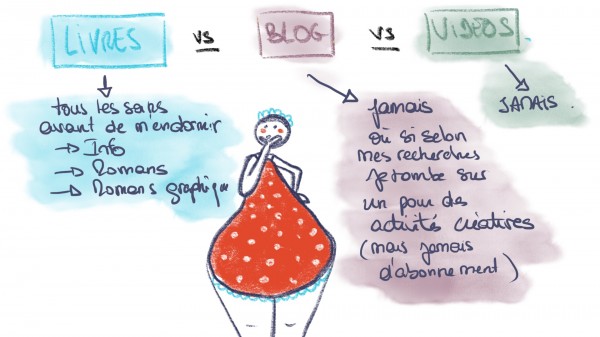 LIVRES vs BLOG vs VIDEOS
tous les soirs
avant de m'endormir
→ Info
→ Romans
→ Romans graphique
jamais
où si selon
mes recherches
je tombe sur
un pour des
activités créatives
(mais jamais
d'abonnement)
JAMAIS.